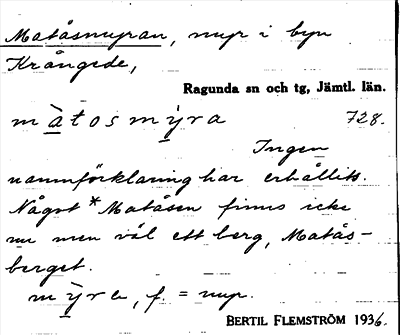 Matåsmyran, myr i byn
Krångede,
Ragunda sn och tg, Jämtl. län.
màtosmỳra 728.
Ingen
namnförklaring har erhållits.
Något *Matåsen finns icke
nu men väl ett berg, Matås-
berget.
mỳra, f. = myr.
BERTIL FLEMSTRÖM 1936.